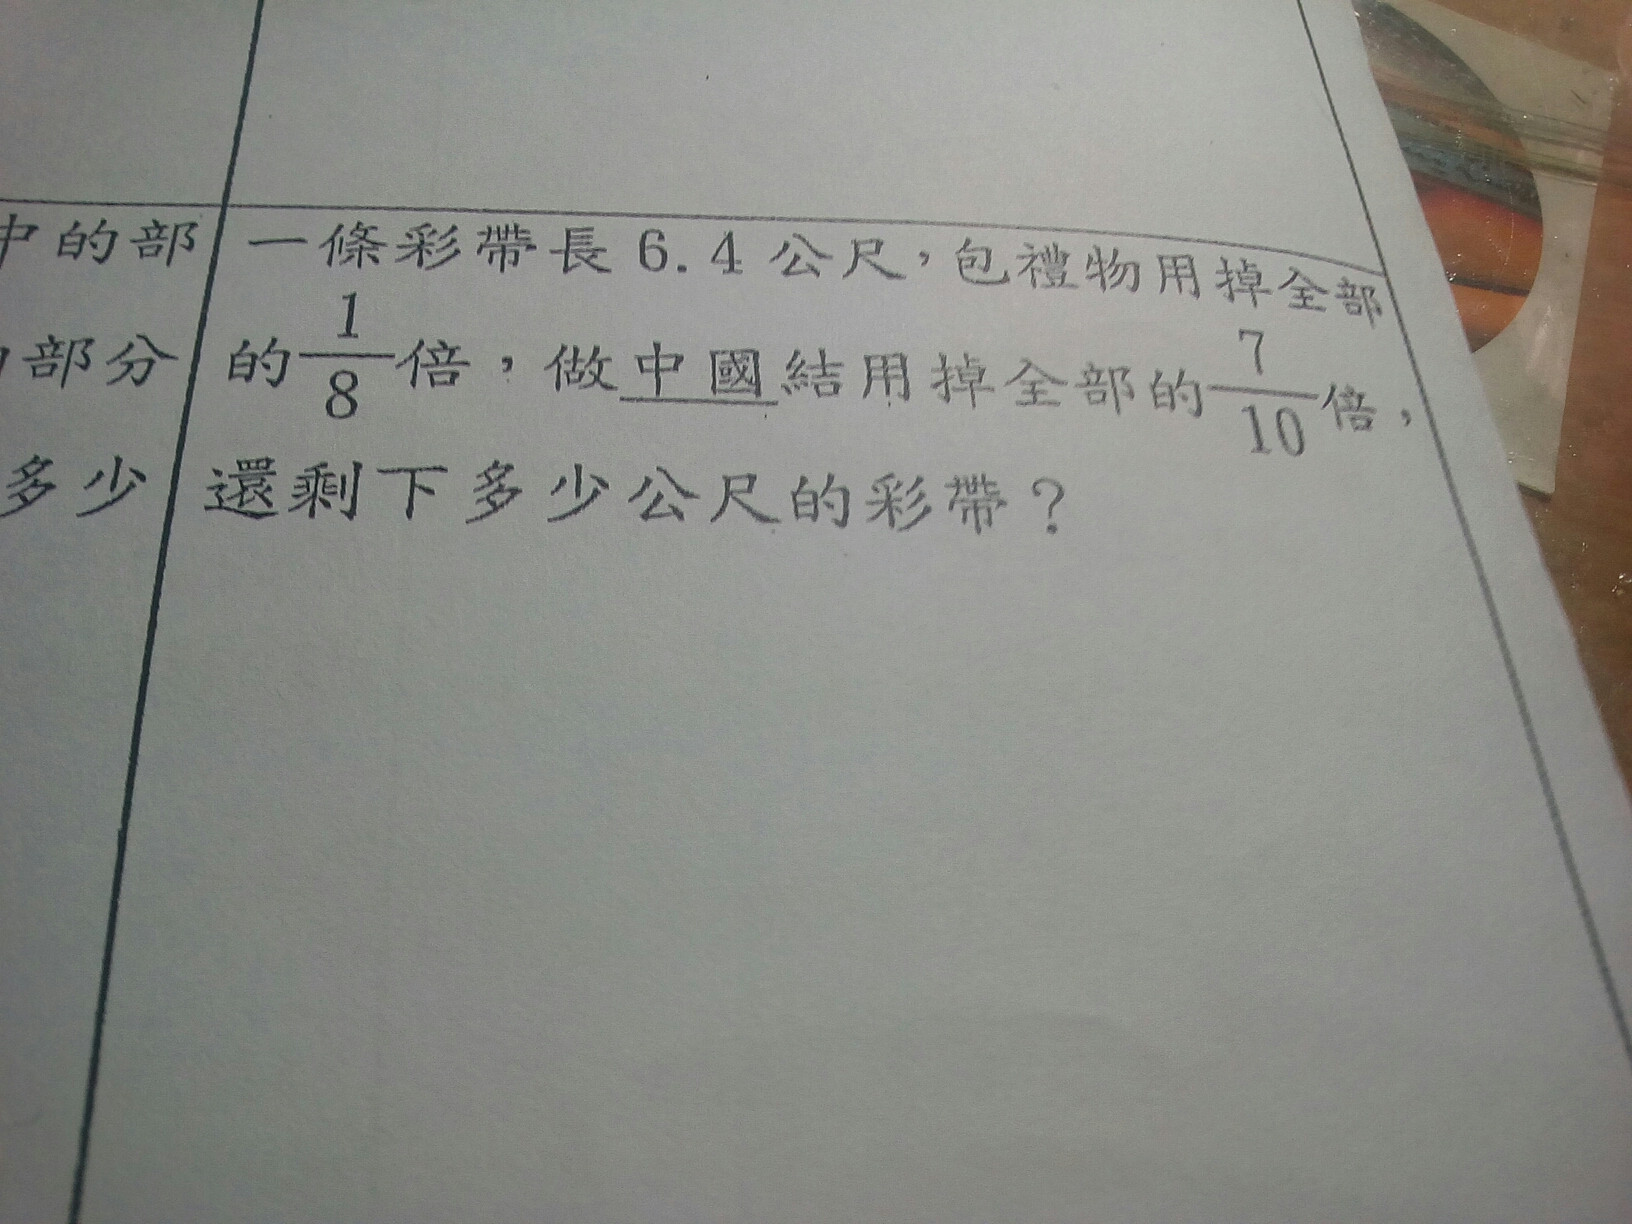 中的部
部分
多少
一條彩帶長6.4公尺，包禮物用掉全部
的1/8倍，做中國結用掉全部的7/10倍，
還剩下多少公尺的彩帶？